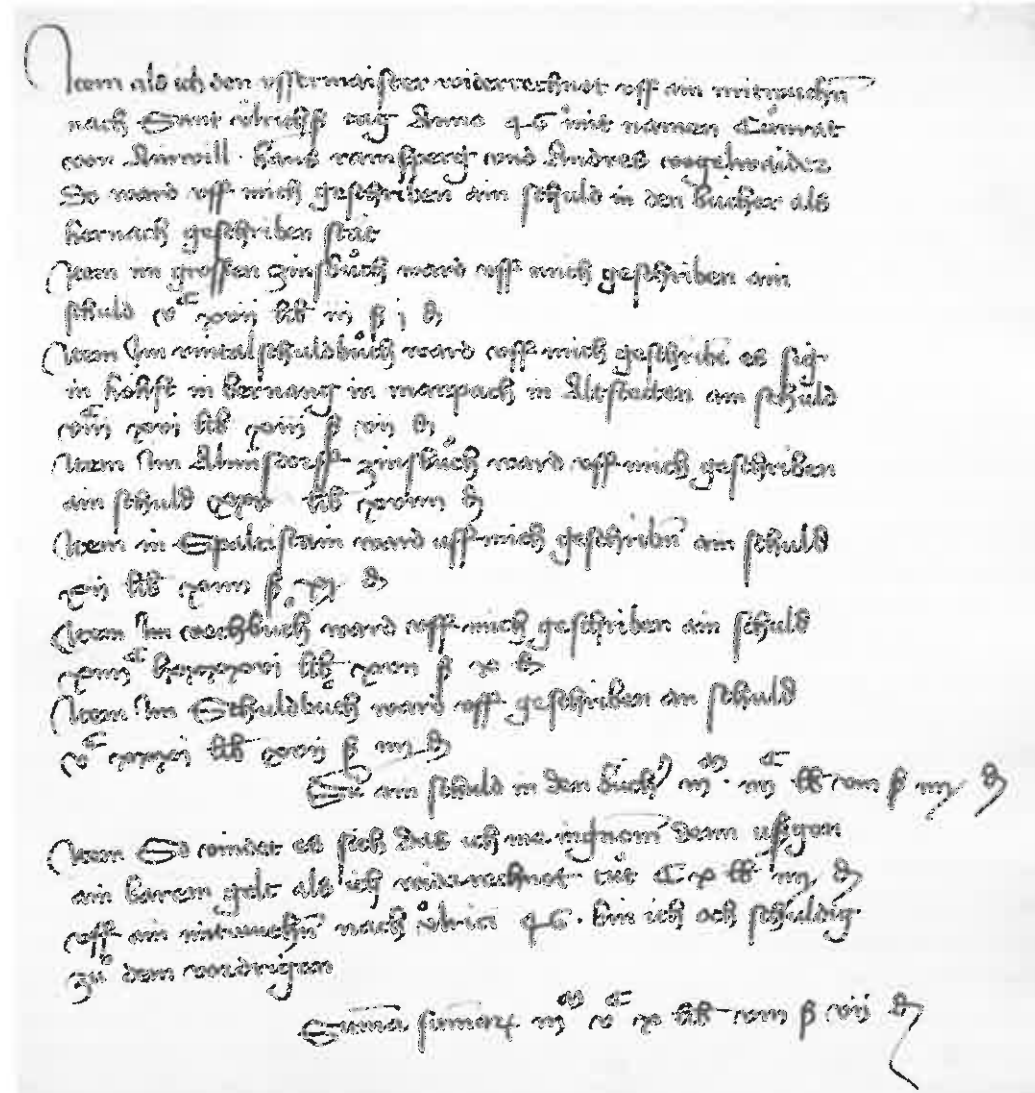 Item als ich den ussermaister widerrechnot uff ain mitwuchn
nach Sant Ulrichs tag Anno 46 mit namen Cůnrat
von Ainwill. Hans ramsperg und Andres vogelwaider
So ward uff mich geschriben ain schuld in den bůcher als
hernach geschriben stat
Item im grossen zinsbůch ward uff mich geschriben ain
schuld vᶜ xvij lb iij ß j d
Item Im schuldbůch ward uff mich geschribē es sig
in hőhst in bernang in marpach in Altstetten ain schuld
xvj lb xiij ß vij d
Item Im zinsbůch ward uff mich geschriben
ain schuld xxv lb xviiii d
Item in Spalt ward uff mich geschribn̄ ain schuld
xij lb xviiii ß xj d
Item Im wochbuch ward uff mich geschriben ain schuld
lb xvii ß x d
Item Im Schuldbuch ward uff geschriben ain schuld
vᶜ lb xvij ß iiij d
Sū ain schuld in den bůch iijᵐ. iiijᶜ lb viii ß iiij d
Item So vindet es sich das ich me ingnom̄ denn ußgen
an barem gelt als ich widerrechnot tůt Cx lb iiij d
uff ain mitwuchn̄ nach Ůlrici 46. bin ich och schuldig
zů dem vordrigen
Sum̄a sum̄arz iijᵐ vᶜ x lb viii ß viij d